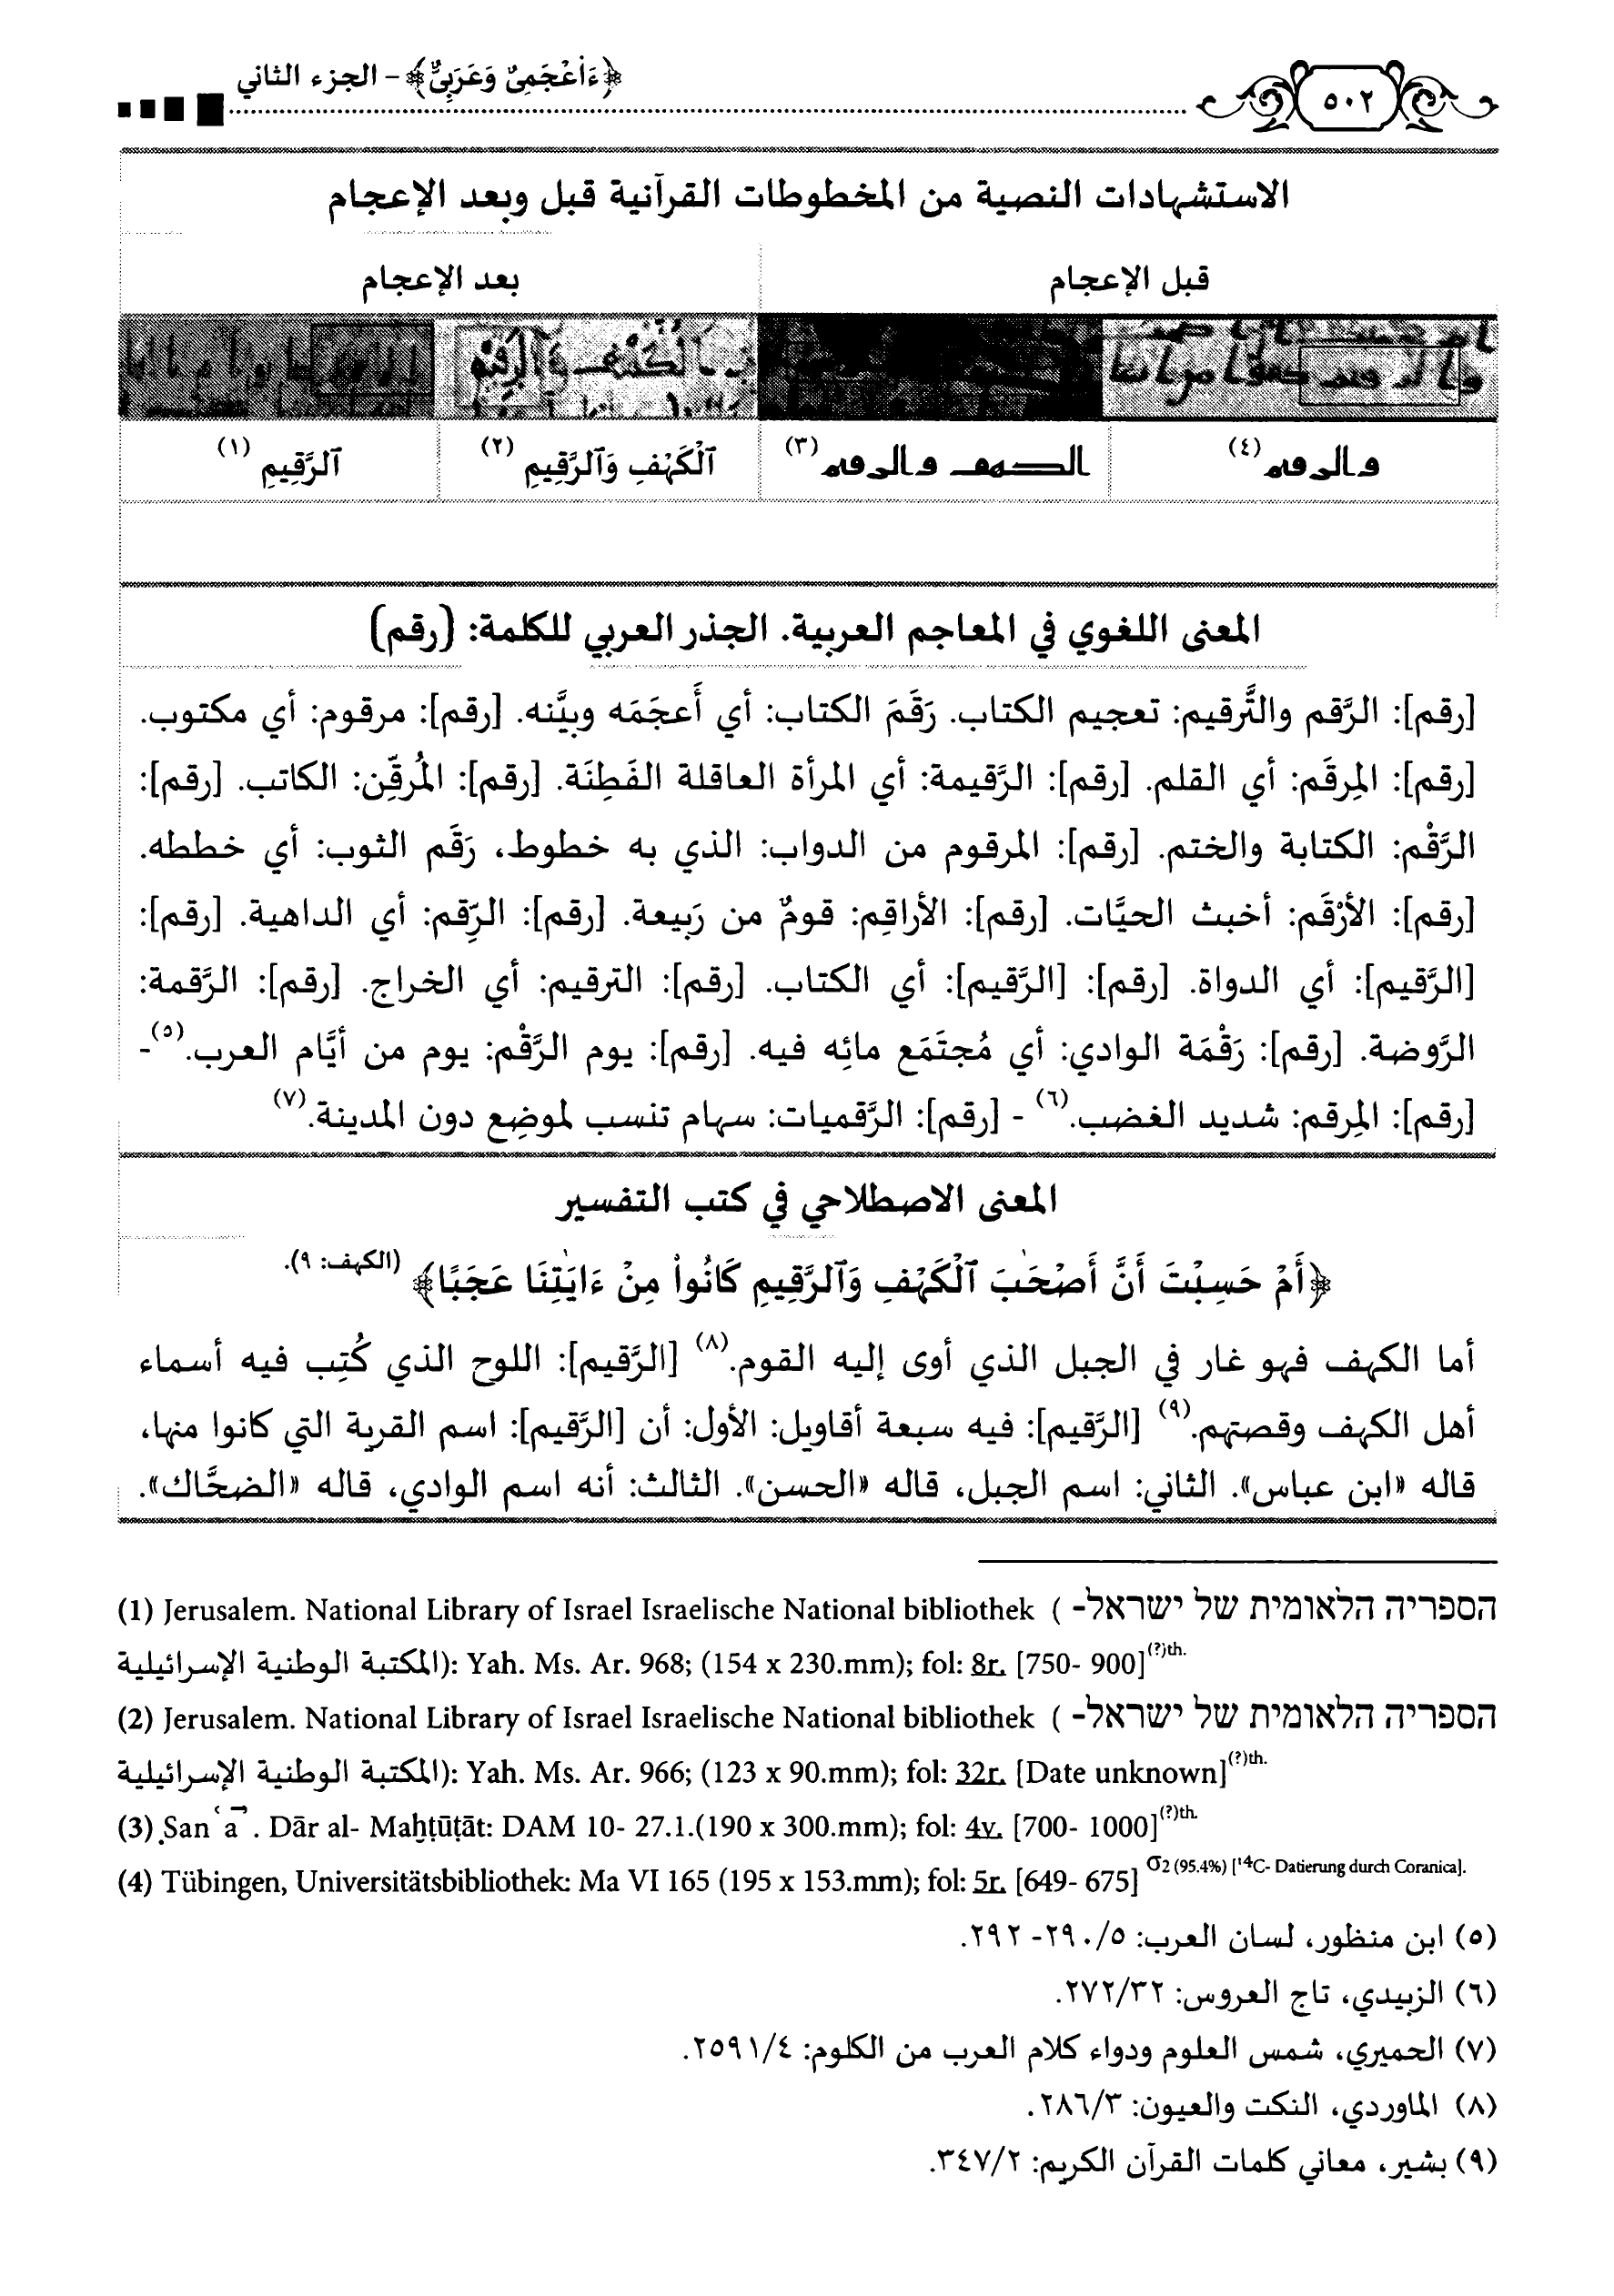 ﴿ءَا۬عْجَمِىٌّ وَعَرَبِىٌّ﴾ – الجزء الثاني
٥٠٢
الاستشهادات النصية من المخطوطات القرآنية قبل وبعد الإعجام
قبل الإعجام
بعد الإعجام
(٤)
(٣)
ٱلْكَهْفِ وَٱلرَّقِيمِ (٢)
ٱلرَّقِيمِ (١)
المعنى اللغوي في المعاجم العربية. الجذر العربي للكلمة: (رقم)
[رقم]: الرَّقم والتَّرقيم: تعجيم الكتاب. رَقَمَ الكتاب: أي أَعجَمَه وبيَّنه. [رقم]: مرقوم: أي مكتوب.
[رقم]: المِرقَم: أي القلم. [رقم]: الرَّقيمة: أي المرأة العاقلة الفَطِنَة. [رقم]: المُرقِّن: الكاتب. [رقم]:
الرَّقْم: الكتابة والختم. [رقم]: المرقوم من الدواب: الذي به خطوط، رَقَم الثوب: أي خططه.
[رقم]: الأرْقَم: أخبث الحيَّات. [رقم]: الأراقِم: قومٌ من رَبيعة. [رقم]: الرِّقم: أي الداهية. [رقم]:
[الرَّقيم]: أي الدواة. [رقم]: [الرَّقيم]: أي الكتاب. [رقم]: الترقيم: أي الخراج. [رقم]: الرَّقمة:
الرَّوضة. [رقم]: رَقْمَة الوادي: أي مُجتَمَع مائِه فيه. [رقم]: يوم الرَّقْم: يوم من أيَّام العرب.(٥)-
[رقم]: المِرقم: شديد الغضب.(٦) - [رقم]: الرَّقميات: سهام تنسب لموضِع دون المدينة.(٧)
المعنى الاصطلاحي في كتب التفسير
﴿أَمْ حَسِبْتَ أَنَّ أَصْحَٰبَ ٱلْكَهْفِ وَٱلرَّقِيمِ كَانُوا۟ مِنْ ءَايَٰتِنَا عَجَبًا﴾ (الكهف: ٩).
أما الكهف فهو غار في الجبل الذي أوى إليه القوم.(٨) [الرَّقيم]: اللوح الذي كُتِب فيه أسماء
أهل الكهف وقصتهم.(٩) [الرَّقيم]: فيه سبعة أقاويل: الأول: أن [الرَّقيم]: اسم القرية التي كانوا منها،
قاله «ابن عباس». الثاني: اسم الجبل، قاله «الحسن». الثالث: أنه اسم الوادي، قاله «الضحَّاك».
(1) Jerusalem. National Library of Israel Israelische National bibliothek ( -הספריה הלאומית של ישראל
المكتبة الوطنية الإسرائيلية): Yah. Ms. Ar. 968; (154 x 230.mm); fol: 8r. [750- 900](?)th.
(2) Jerusalem. National Library of Israel Israelische National bibliothek ( -הספריה הלאומית של ישראל
المكتبة الوطنية الإسرائيلية): Yah. Ms. Ar. 966; (123 x 90.mm); fol: 32r. [Date unknown](?)th.
(3) Ṣanʿāʾ. Dār al- Maḫṭūṭāt: DAM 10- 27.1.(190 x 300.mm); fol: 4v. [700- 1000](?)th.
(4) Tübingen, Universitätsbibliothek: Ma VI 165 (195 x 153.mm); fol: 5r. [649- 675] σ2 (95.4%) [14C- Datierung durch Coranica].
(٥) ابن منظور، لسان العرب: ٥/ ٢٩٠- ٢٩٢.
(٦) الزبيدي، تاج العروس: ٣٢/ ٢٧٢.
(٧) الحميري، شمس العلوم ودواء كلام العرب من الكلوم: ٤/ ٢٥٩١.
(٨) الماوردي، النكت والعيون: ٣/ ٢٨٦.
(٩) بشير، معاني كلمات القرآن الكريم: ٢/ ٣٤٧.